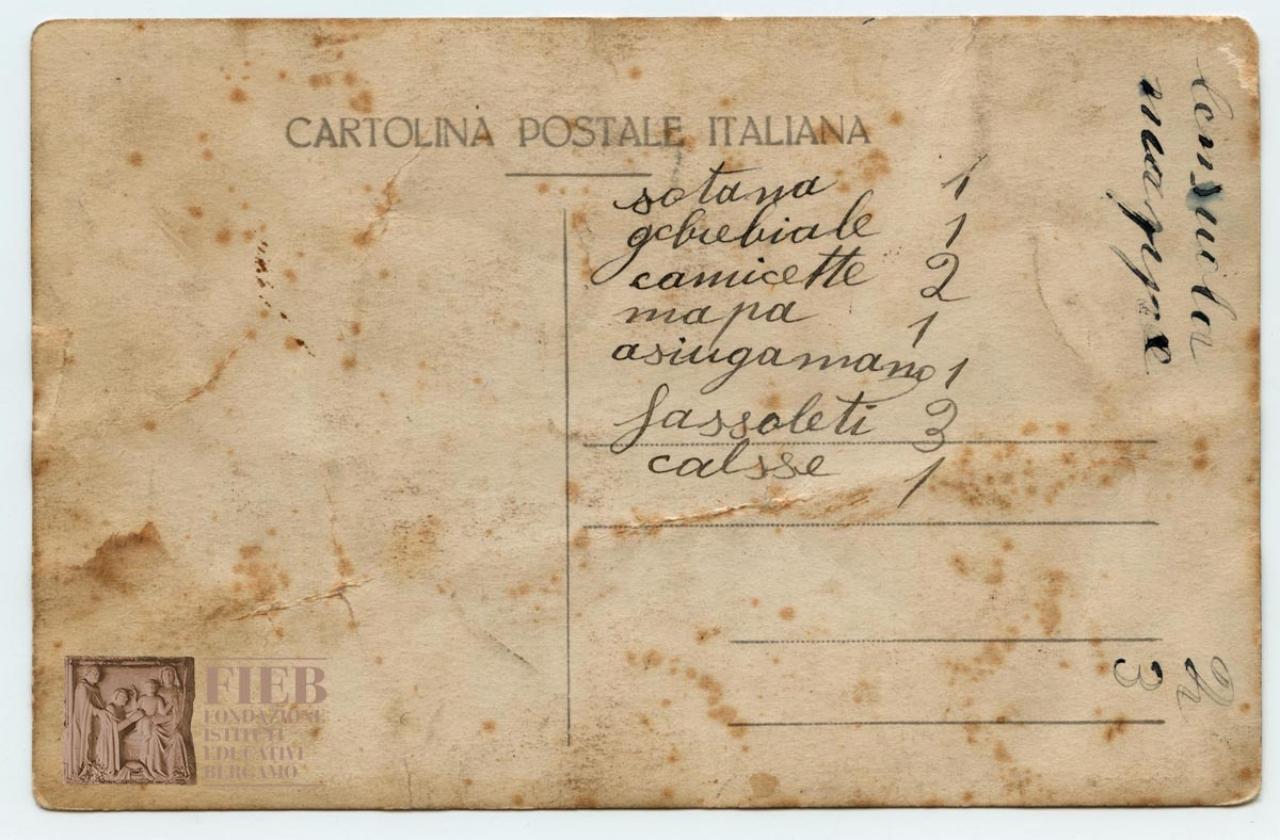 CARTOLINA POSTALE ITALIANA
sotana 1
camicette 2
mapa 1
asiugamano 1
fassoleti 3
calsse 1
3
FIEB
FONDAZIONE
ISTITUTI
EDUCATIVI
BERGAMO